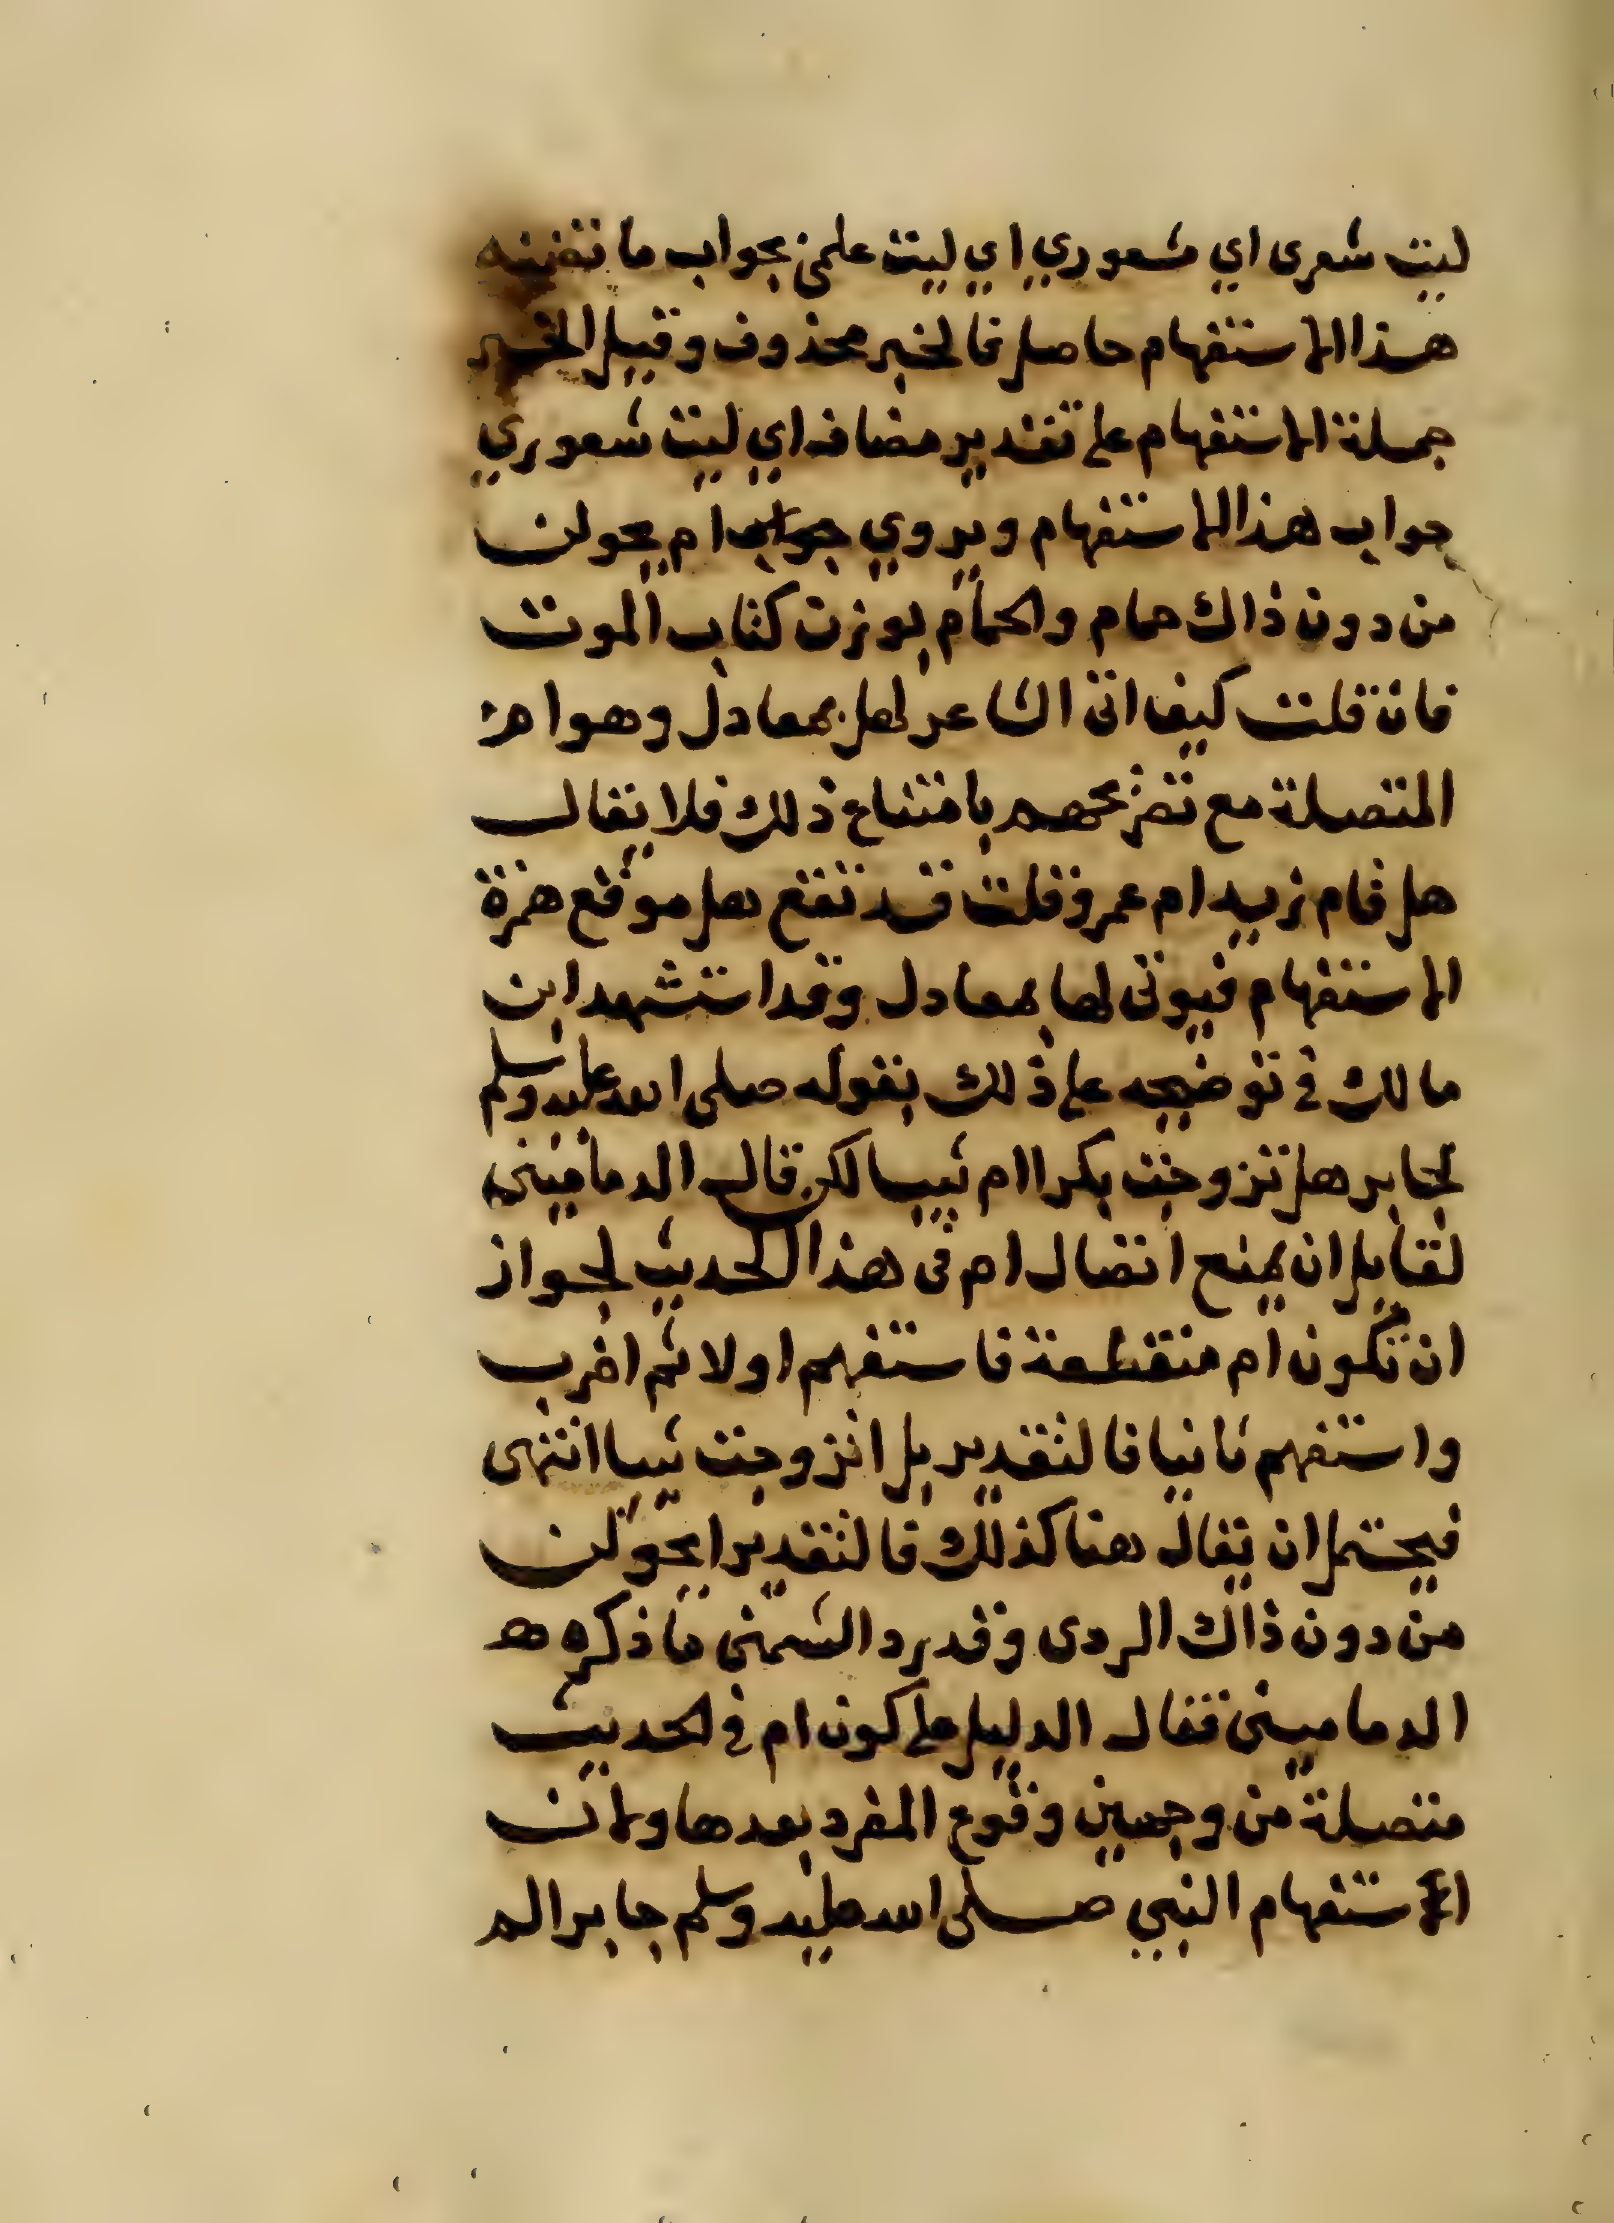 ليت شعرى اي شعوري اي ليت علمي بجواب ما تضمنه
هذا الاستفهام حاصل فالخبر محذوف وقيل الخبر
جملة الاستفهام على تقدير مضاف اي ليت شعوري
جواب هذا الاستفهام ويروي ام يحولن
من دون ذاك حمام والحمام بوزن كتاب الموت
فان قلت كيف اتى الشاعر لهل بمعادل وهو ام
المتصلة مع تصريحهم بامتناع ذلك فلا يقال
هل قام زيد ام عمرو قلت قد تقع هل موقع همزة
الاستفهام فيوتى لها بمعادل وقد استشهد ابن
مالك في توضيحه على ذلك بقوله صلى الله عليه وسلم
لجابر هل تزوجت بكرا ام ثيبا لكن قال الدمامينى
لقايل ان يمنع اتصال ام فى هذا الحديث لجواز
ان تكون ام منقطعة فاستفهم اولا ثم اضرب
واستفهم ثانيا فالتقدير بل اتزوجت ثيبا انتهى
فيحتمل ان يقال هنا كذلك فالتقدير ايحولن
من دون ذاك الردى وقد رد الشمنى ما ذكره
الدمامينى فقال الدليل على كون ام في الحديث
متصلة من وجهين وقوع المفرد بعدها ولان
استفهام النبي صلى الله عليه وسلم جابرا لم